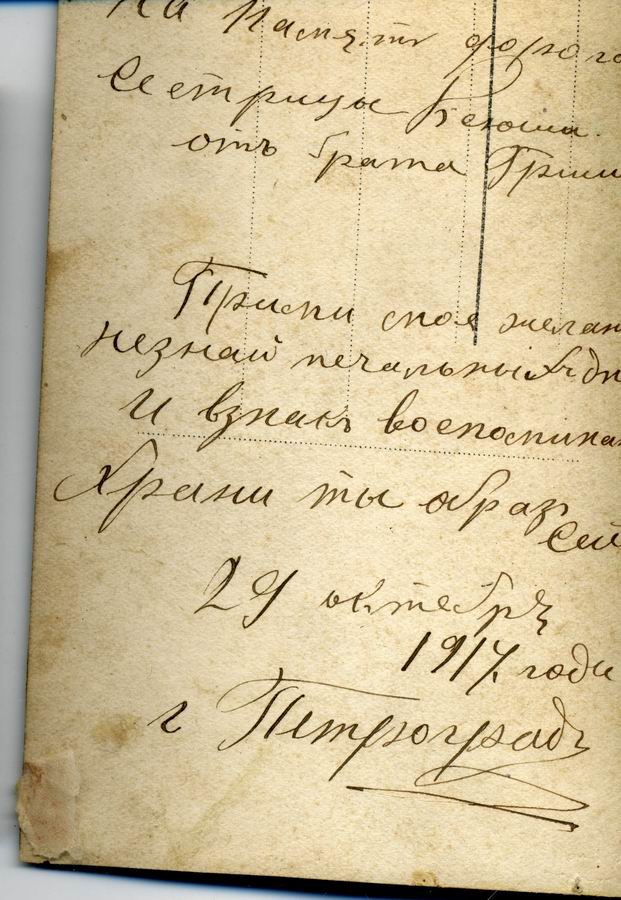 на память дорого
Сестрицы Ксюши
отъ брата Гриши
Прими мое желан
незнай печальных дн
И взнакъ воспоминан
Храни ты образ
Сей
29 октебря
1917 годи
г Петроградъ